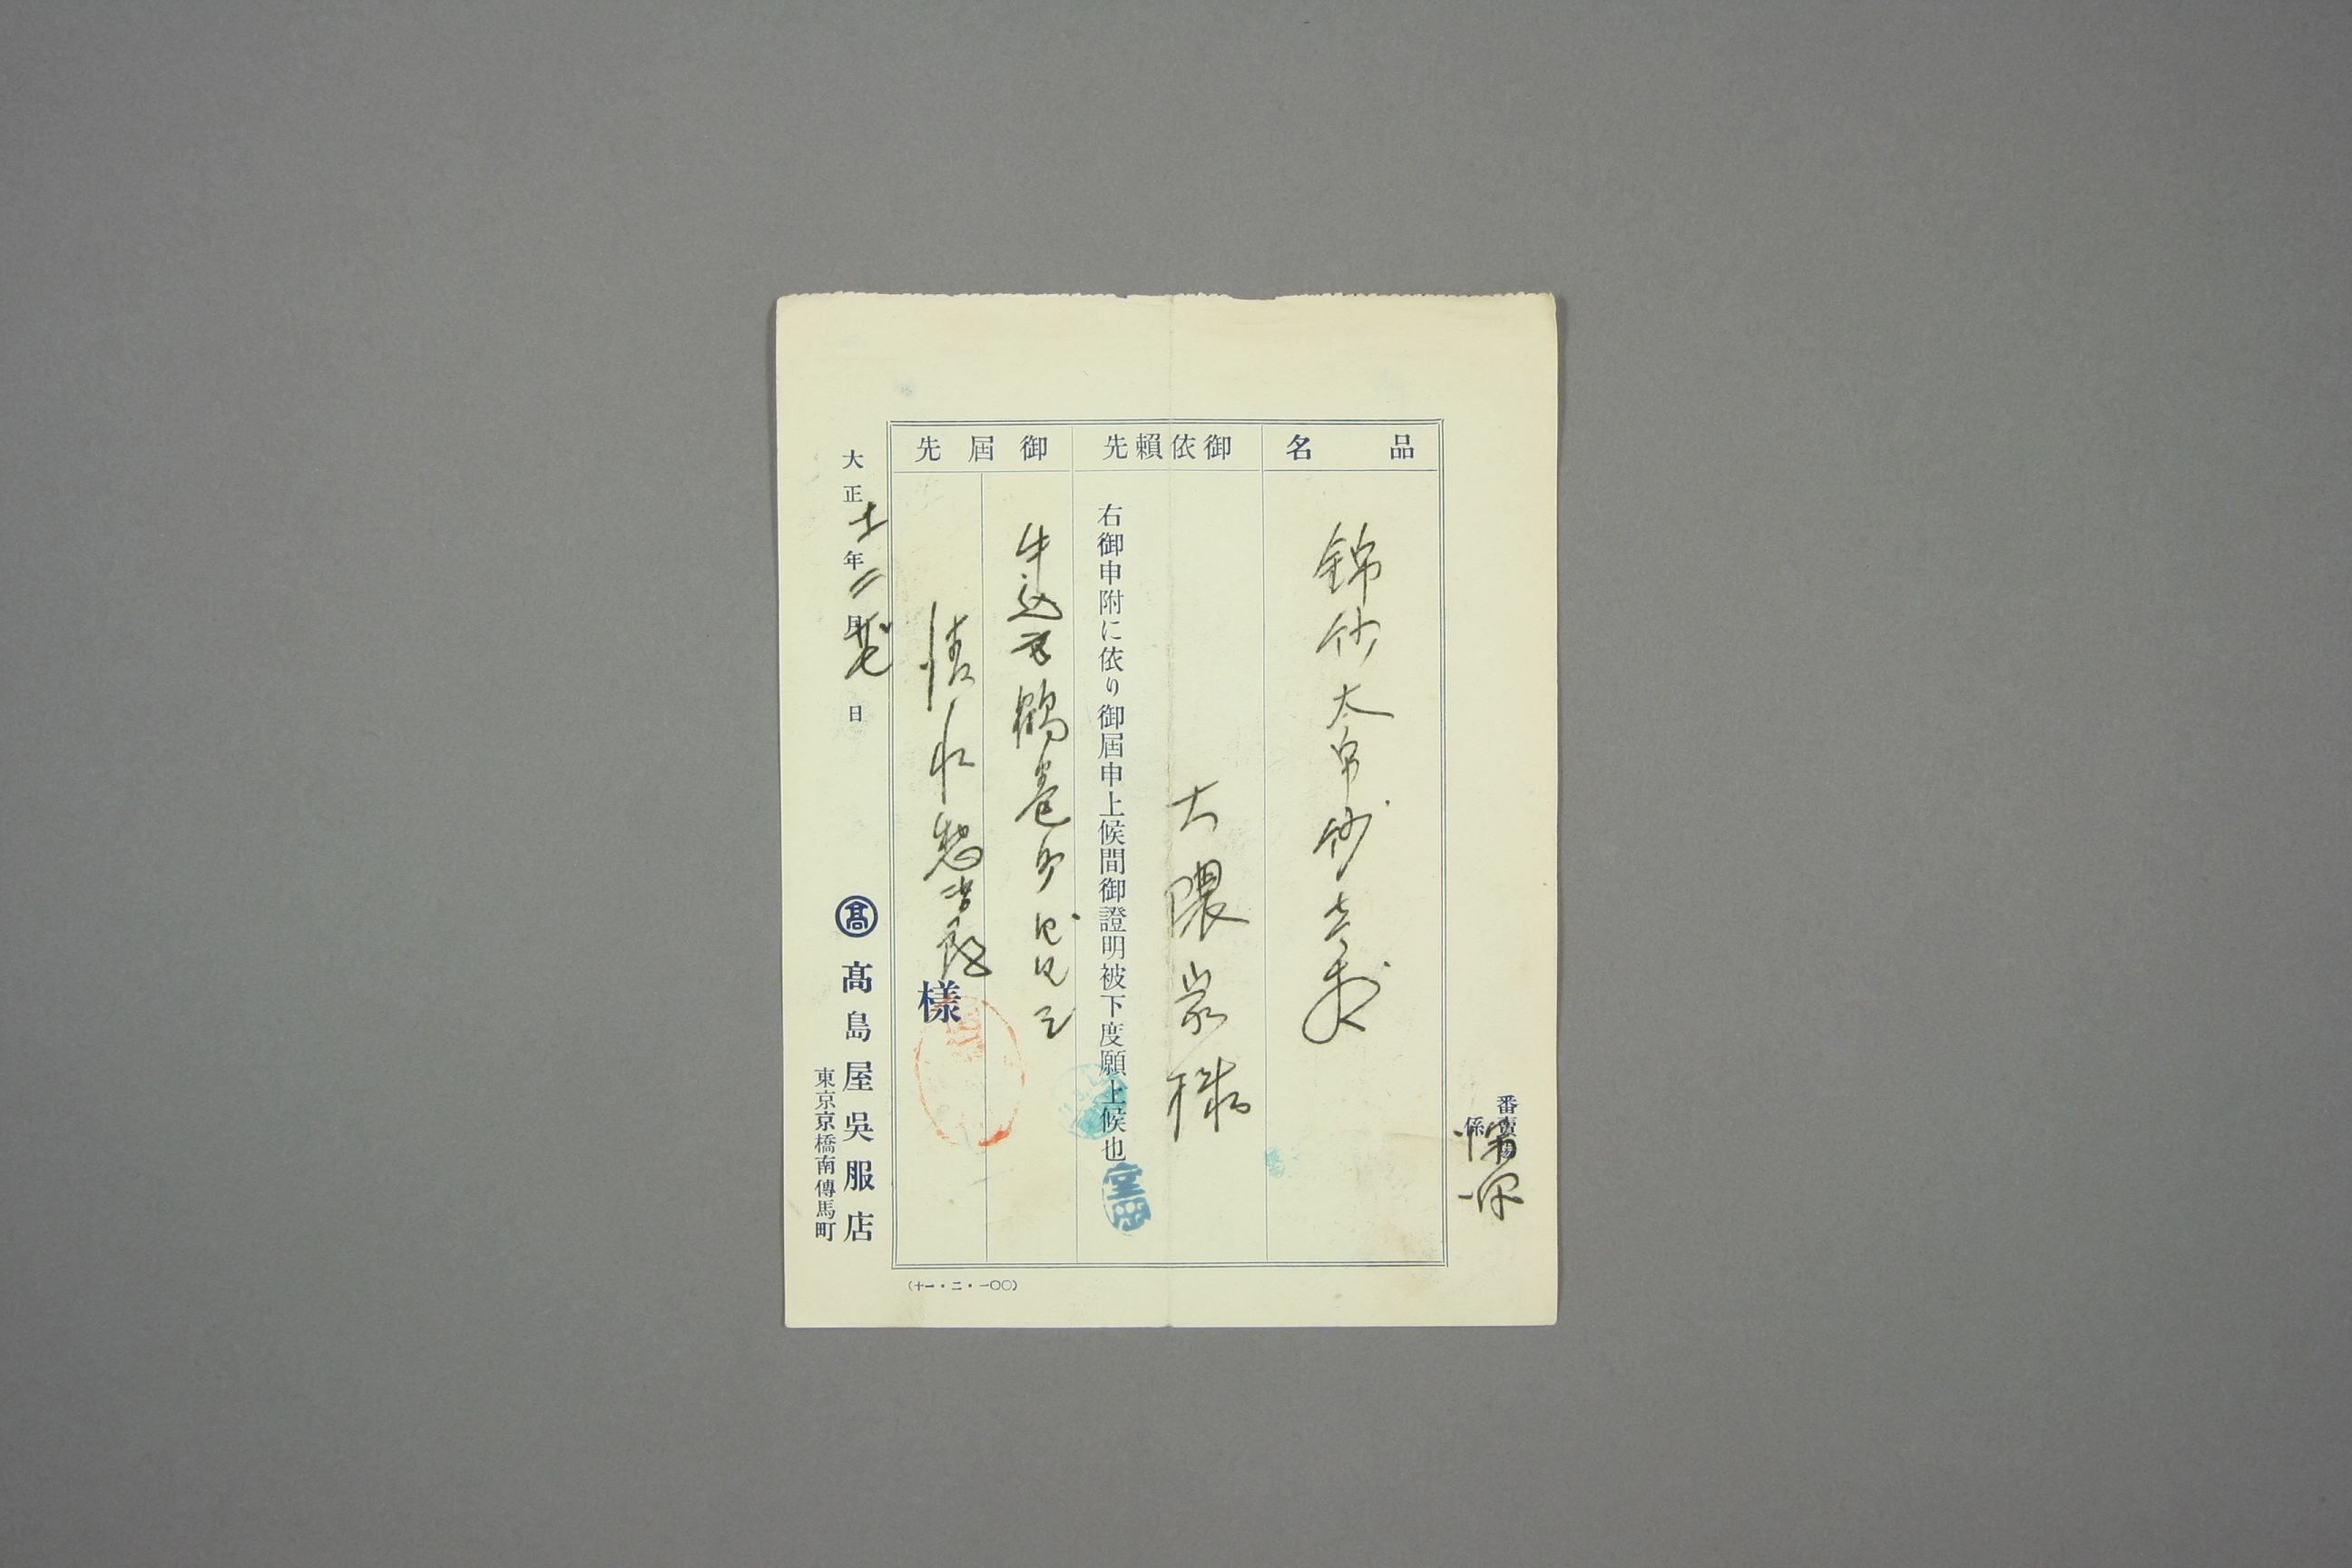 番賣場
係
品名
錦紗太帛紗壱
御依賴先
大隈家様
右御申附に依り御屆申上候間御證明被下度願上候也
御屆先
牛込區鶴巻町
清水惣吉殿
様
大正十一年二月廿七日
髙
髙島屋吳服店
東京京橋南傳馬町
(十一・二・一〇〇)